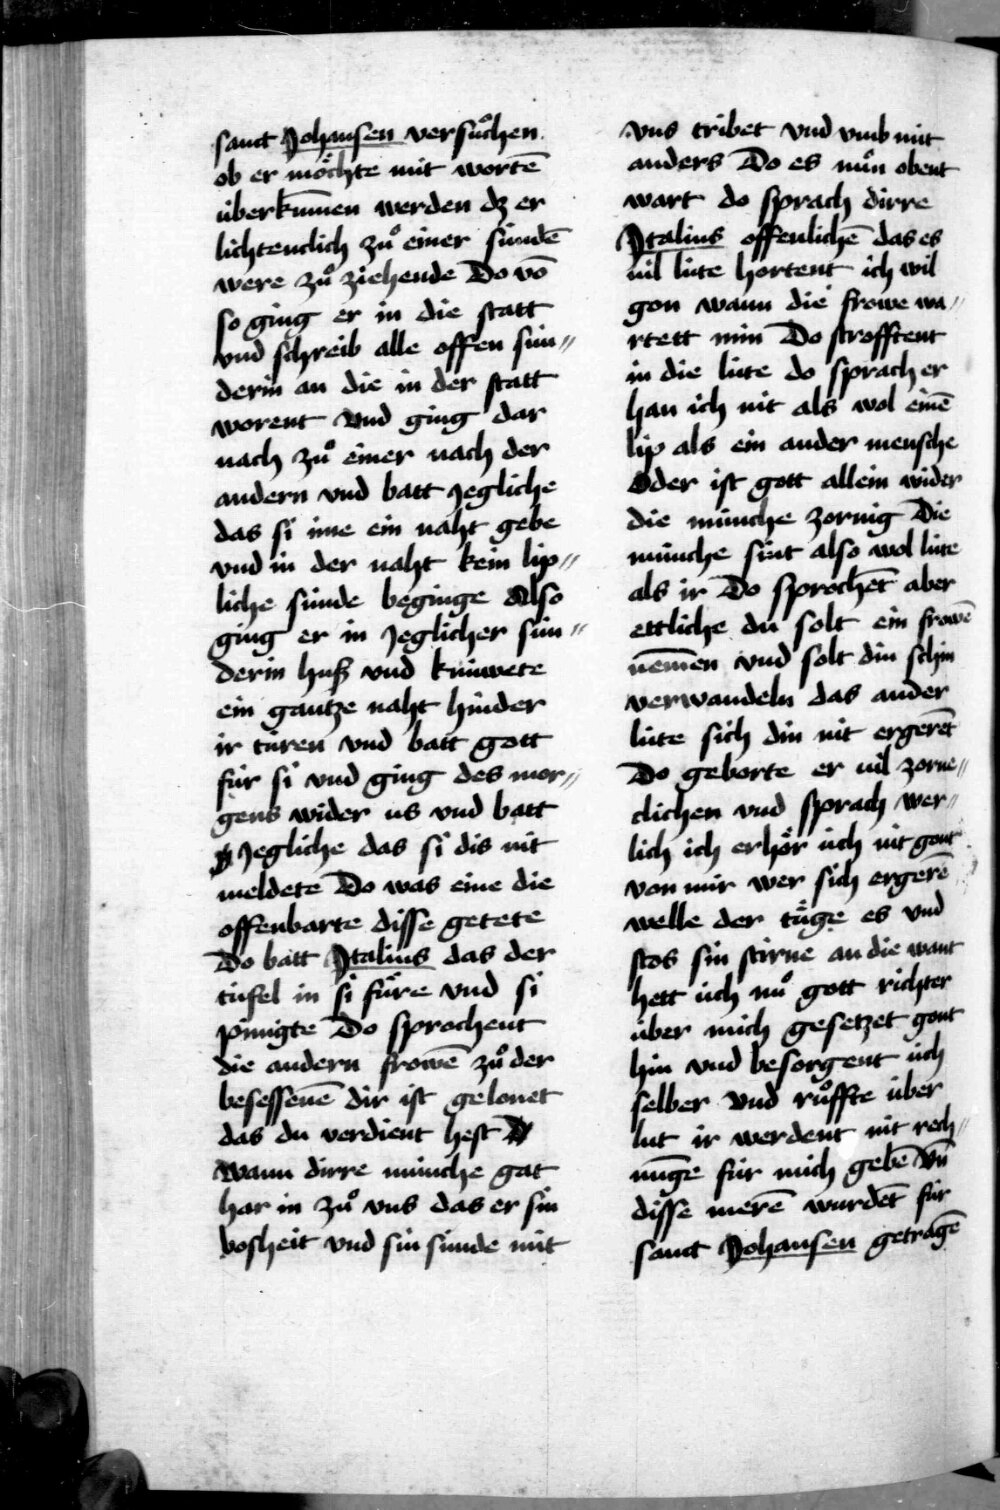 sanct Johansen versuͦchen
ob er moͤchte mit wortē
úberkūmen werden dz er
lichtenclich zuͦ einer súndē
were zuͦ ziehende Do vō
so ging er in die statt
vnd schreib alle offen sún〃
derin an die in der statt
worent Vnd ging dar
nach zuͦ einer nach der
andern vnd batt Jegliche
das si ime ein naht gebe
vnd in der naht kein lip〃
liche súnde beginge Also
ging er in Jeglicher sún〃
derin huß vnd knúwete
ein gantze naht hinder
ir túren vnd batt gott
fúr si vnd ging des mor〃
gens wider us vnd batt
Jegliche das si dis nit
meldete Do was eine die
offenbarte disse getete
Do batt Jtalius das der
túfel in si fuͤre vnd si
pinigte Do sprochent
die andern frowē zuͦ der
besessenē dir ist gelonet
das du verdient hest
Wann dirre múnche gat
har in zuͦ vns das er sin
bosheit vnd sin súnde mit
vns tribet vnd vmb nút
anders Do es nuͦn obent
wart do sprach dirre
Jtalius offenlichē das es
vil lúte hortent ich wil
gon wann die frowe wa〃
rtett min Do strofftent
in die lúte do sprach er
han ich nit als wol einē
lip als ein ander mensche
Oder ist gott allein wider
die múnche zornig Die
múnche sint also wol lúte
als ir Do sprochēt aber
ettliche du solt ein frowē
nēmen vnd solt din schin
verwandeln das ander
lúte sich din nit ergerēt
Do geborte er vil zorne〃
clichen vnd sprach wer〃
lich ich erhoͤr úch nit gont
von mir wer sich ergerē
welle der tuͤge es vnd
stos sin stirne an die want
hett úch nuͦ gott richter
úber mich gesetzet gont
hin vnd besorgent úch
selber Vnd ruͦffte úber
lut ir werdent nit rech〃
nūge fúr mich gebē Vn̄
disse merē wurdēt fúr
sanct Johansen getragē